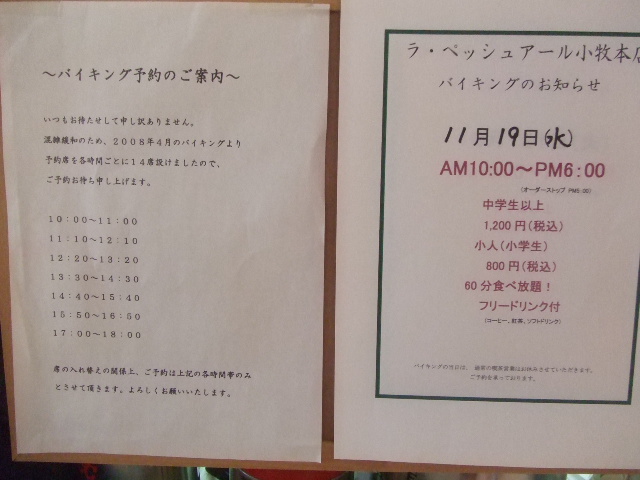 ～バイキング予約のご案内～
いつもお待たせして申し訳ありません。
混雑緩和のため、２００８年４月のバイキングより
予約席を各時間ごとに１４席設けましたので、
ご予約お待ち申し上げます。
１０：００～１１：００
１１：１０～１２：１０
１２：２０～１３：２０
１３：３０～１４：３０
１４：４０～１５：４０
１５：５０～１６：５０
１７：００～１８：００
席の入れ替えの関係上、ご予約は上記の各時間帯のみ
とさせて頂きます。よろしくお願いいたします。
ラ・ペッシュアール小牧本店
バイキングのお知らせ
11月19日(水)
AM10:00～PM6:00
(オーダーストップ PM5:00)
中学生以上
1,200円(税込)
小人(小学生)
800円(税込)
60分食べ放題！
フリードリンク付
(コーヒー、紅茶、ソフトドリンク)
バイキングの当日は、通常の喫茶営業はお休みさせていただきます。
ご予約を承っております。